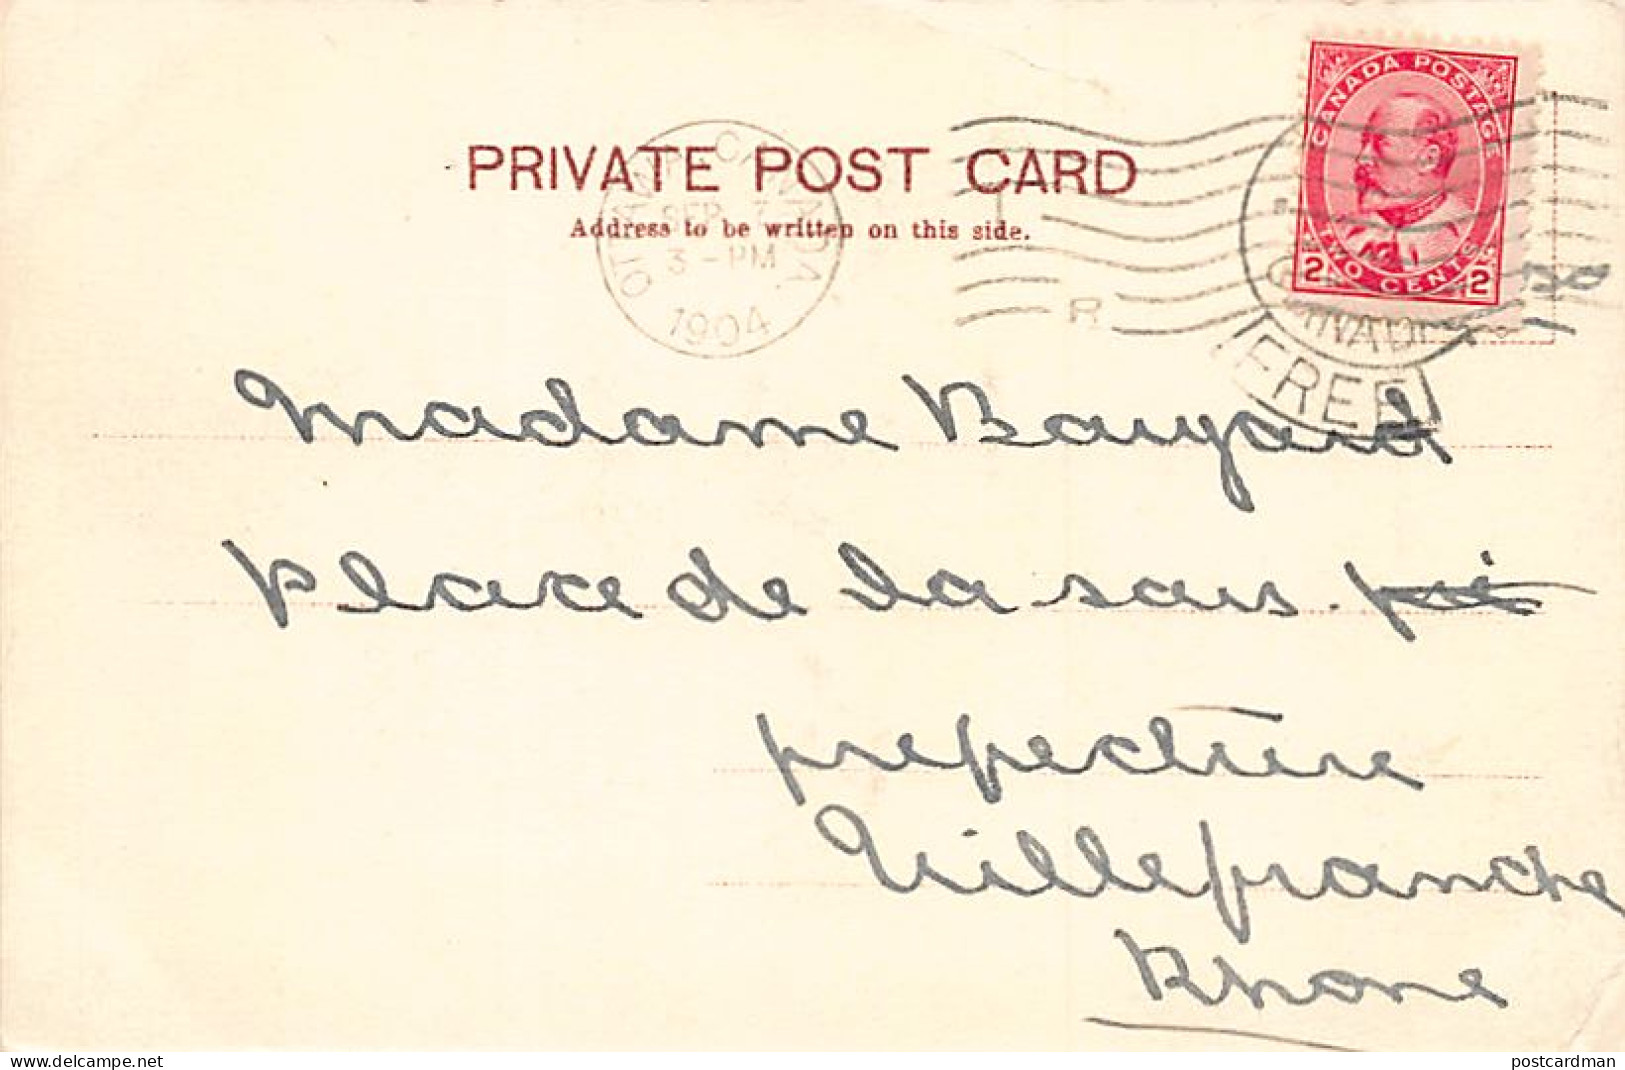 CANADA POSTAGE
TWO CENTS
2 2
PRIVATE POST CARD
Address to be written on this side.
OTTAWA, CANADA.
SEP 7
3-PM
1904
R
FREE
Madame Bayard
place de la sous
prefecture
Villefranche
Rhone
delcampe.net
postcardman